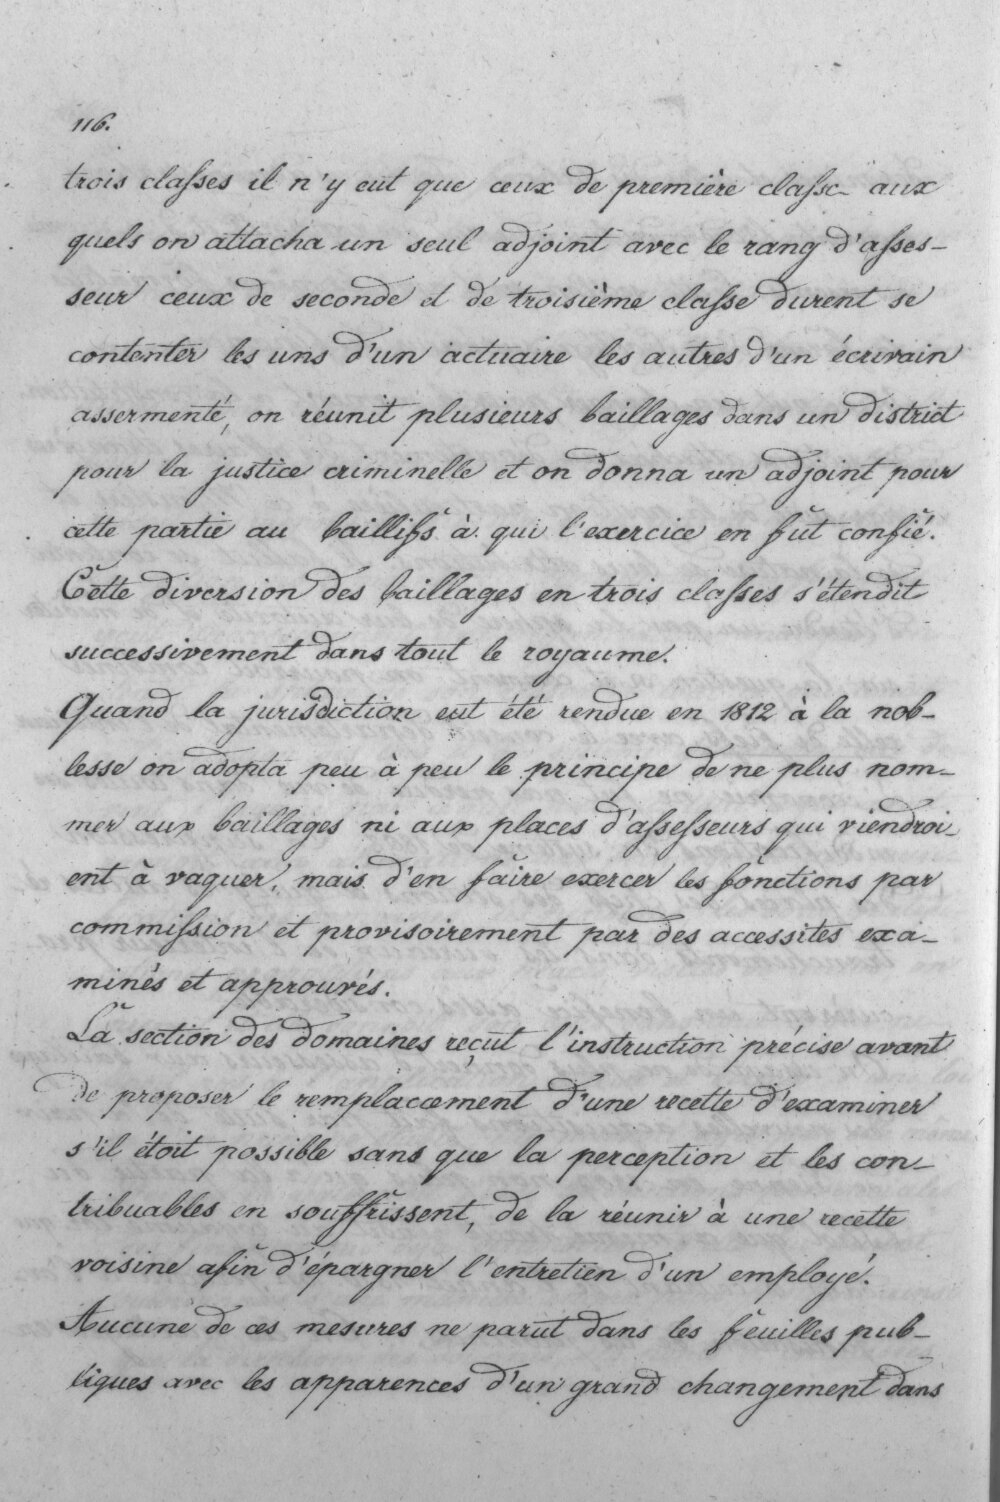 116.
trois classes il n'y eut que ceux de première classe aux
quels on attacha un seul adjoint avec le rang d'asses-
seur ceux de seconde et de troisième classe durent se
contenter les uns d'un actuaire les autres d'un écrivain
assermenté, on réunit plusieurs baillages dans un district
pour la justice criminelle et on donna un adjoint pour
cette partie au baillifs à qui l'exercice en fut confié.
Cette diversion des baillages en trois classes s'étendit
successivement dans tout le royaume.
Quand la jurisdiction eut été rendue en 1812 à la nob-
lesse on adopta peu à peu le principe de ne plus nom-
mer aux baillages ni aux places d'assesseurs qui viendroi-
ent à vaquer, mais d'en faire exercer les fonctions par
commission et provisoirement par des accessites exa-
minés et approuvés.
La section des domaines reçut l'instruction précise avant
de proposer le remplacement d'une recette d'examiner
s'il étoit possible sans que la perception et les con-
tribuables en souffrissent, de la réunir à une recette
voisine afin d'épargner l'entretien d'un employé.
Aucune de ces mesures ne parut dans les feuilles pub-
liques avec les apparences d'un grand changement dans